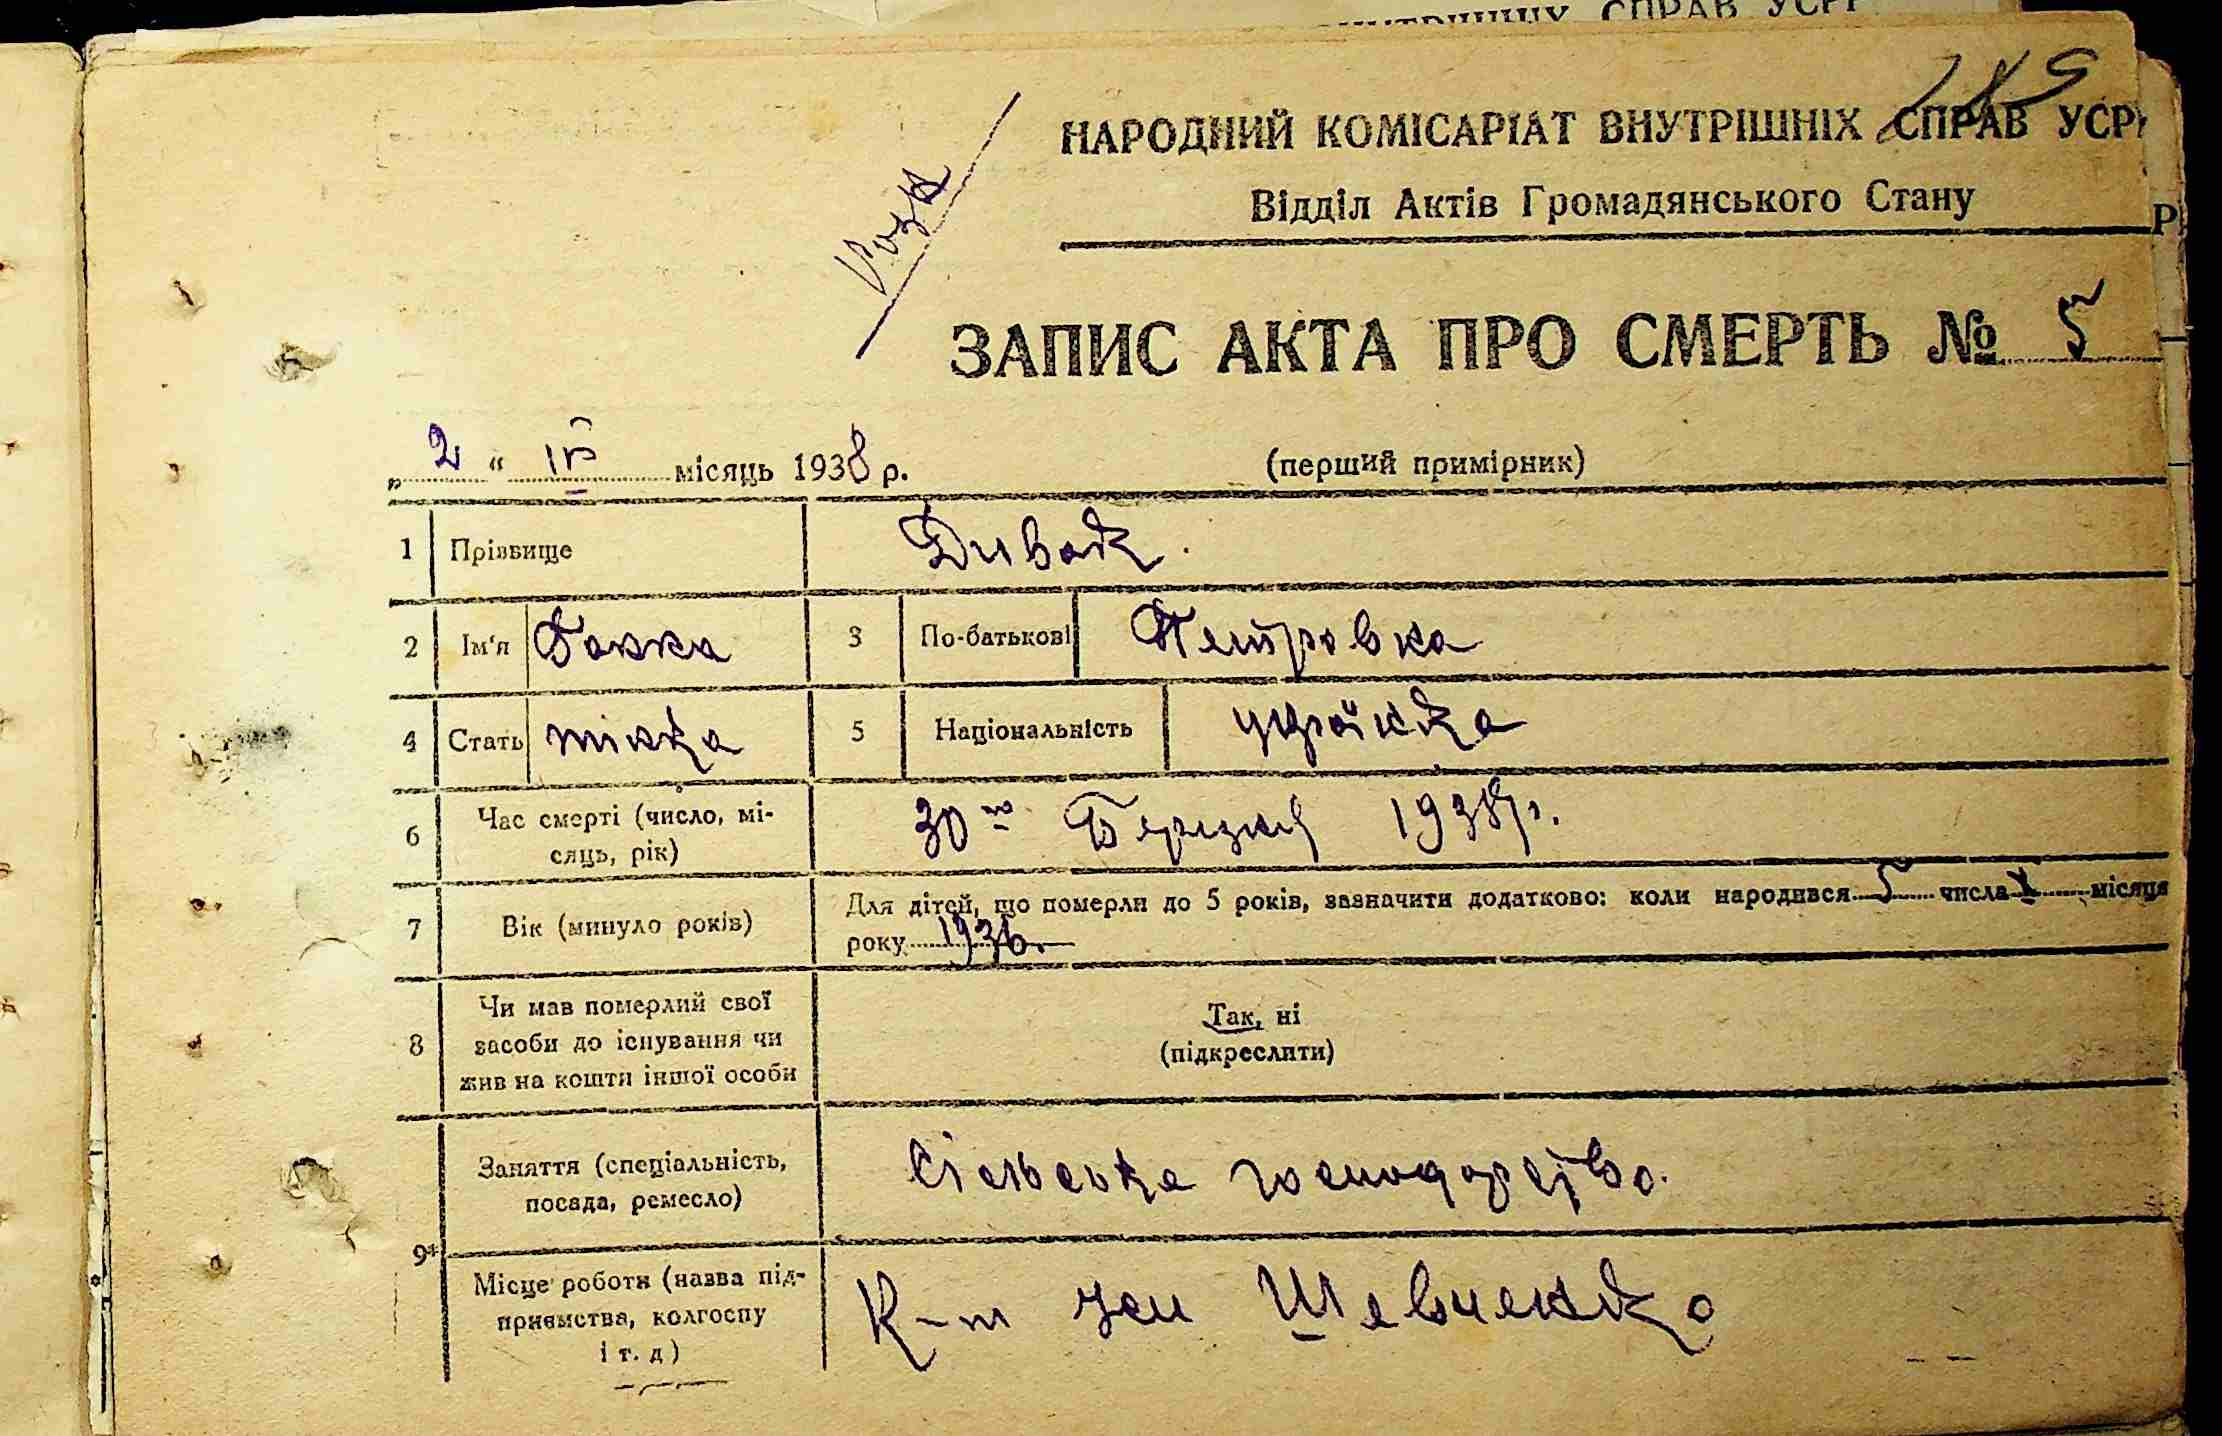 НАРОДНИЙ КОМІСАРІАТ ВНУТРІШНІХ СПРАВ УСРР
Відділ Актів Громадянського Стану
ЗАПИС АКТА ПРО СМЕРТЬ № 5
„ 2 “ IV місяць 1938 р. (перший примірник)
1 Прізвище Дивак.
2 Ім'я Ганна 3 По-батькові Петровна
4 Стать жінка 5 Національність українка
6 Час смерті (число, мі-
сяць, рік) 30го Березня 1938р.
7 Вік (минуло років) Для дітей, що померли до 5 років, зазначити додатково: коли народився 5 числа X місяця
року 1936.
8 Чи мав померлий свої
засоби до існування чи
жив на кошти іншої особи
Так, ні
(підкреслити)
9 Заняття (спеціальність,
посада, ремесло) Сільське господарство.
Місце роботи (назва під-
приємства, колгоспу
і т. д)
К-п ім Шевченко